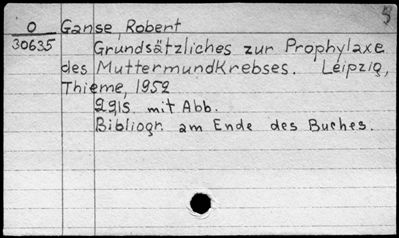 O Ganse, Robert
30635 Grundsätzliches zur Prophylaxe
des Muttermundkrebses. Leipzig,
Thieme, 1952
29,1 S mit Abb.
Bibliogr. am Ende des Buches.